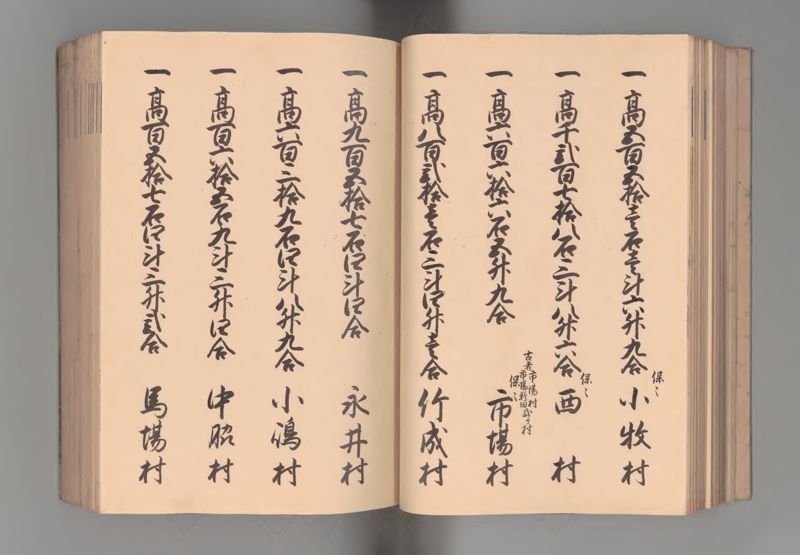 一 高五百五拾壱石壱斗六升九合 保ミ 小牧村
一 高千弐百七拾八石二斗八升六合 保ミ 西村
一 高六百六拾六石五升九合 保ミ 市場村
古者市場村
市場新田弐ケ村
一 高八百弐拾壱石二斗四升壱合 竹成村
一 高九百五拾七石四斗四合 永井村
一 高六百二拾九石四斗八升九合 小嶋村
一 高百六拾五石九斗二升四合 中昭村
一 高百五拾七石四斗二升弐合 馬場村